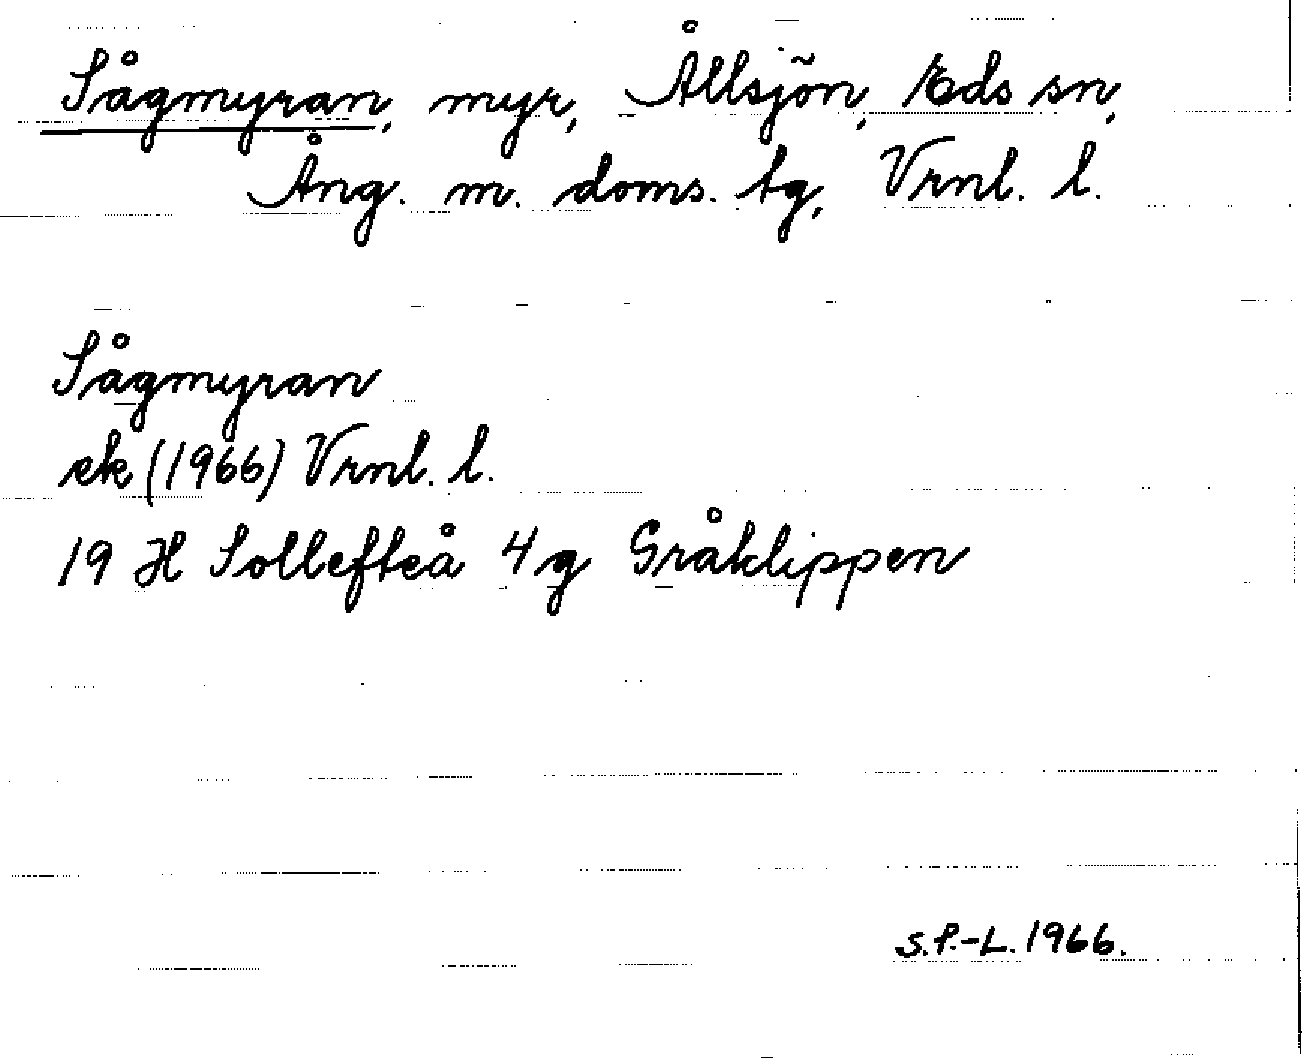 Sågmyran, myr, Ållsjön, Eds sn,
Ång. m. doms. tg, Vrnl. l.
Sågmyran
ek (1966) Vrnl. l.
19 H Sollefteå 4g Gråklippen
S.P.-L. 1966.